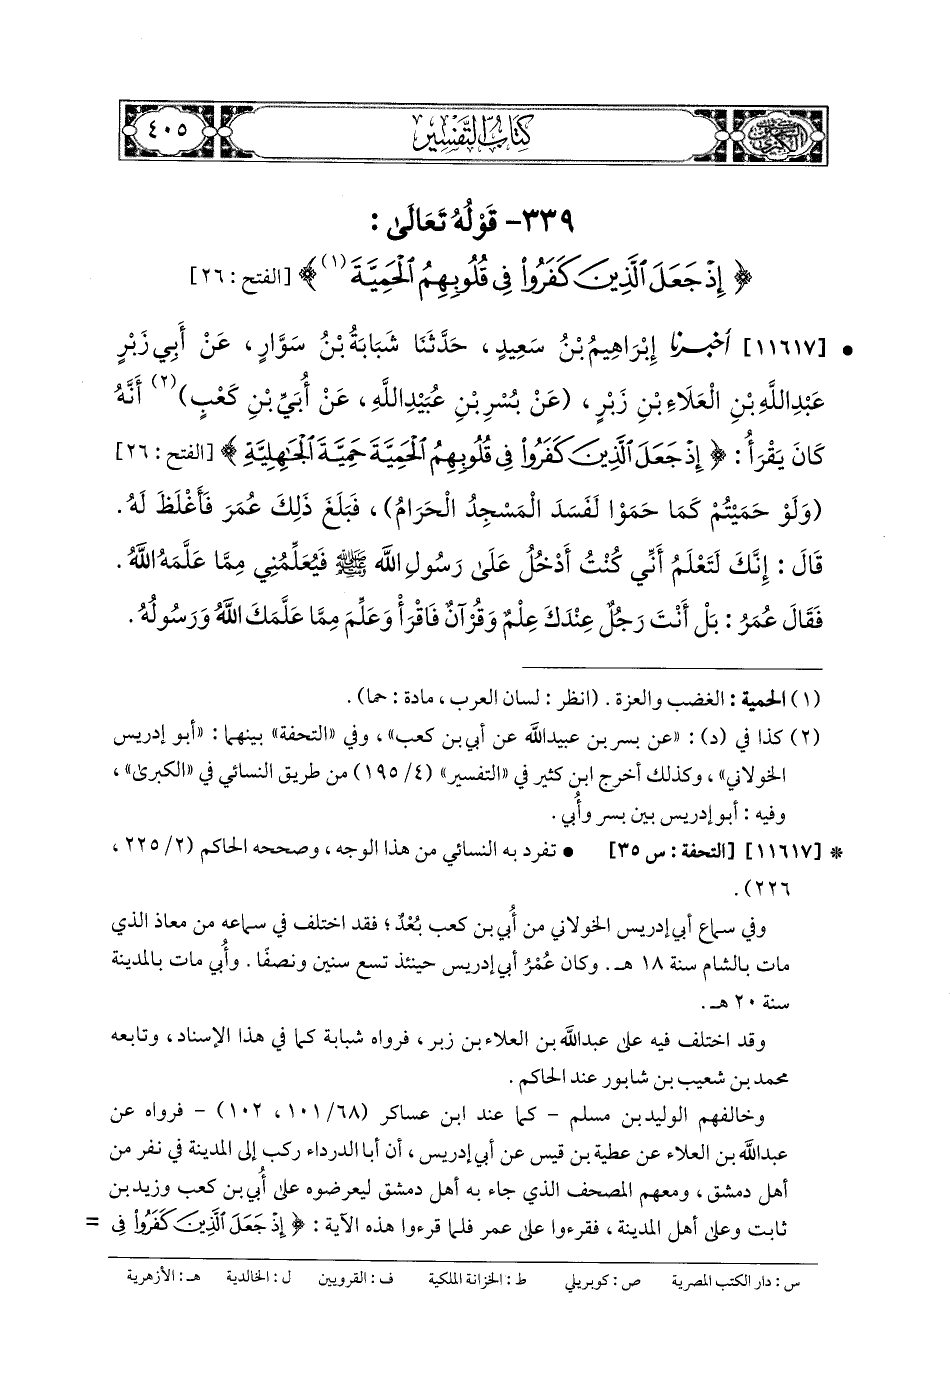 كتاب التفسير
٤٠٥
٣٣٩- قَوْلُهُ تَعَالَىٰ :
﴿ إِذْ جَعَلَ ٱلَّذِينَ كَفَرُوا۟ فِى قُلُوبِهِمُ ٱلْحَمِيَّةَ (١) ﴾ [الفتح : ٢٦]
• [١١٦١٧] أخبرنا إِبْرَاهِيمُ بْنُ سَعِيدٍ ، حَدَّثَنَا شَبَابَةُ بْنُ سَوَّارٍ ، عَنْ أَبِي زَبْرٍ
عَبْدِاللَّهِ بْنِ الْعَلَاءِ بْنِ زَبْرٍ ، (عَنْ بُسْرِ بْنِ عُبَيْدِاللَّهِ ، عَنْ أُبَيِّ بْنِ كَعْبٍ)(٢) أَنَّهُ
كَانَ يَقْرَأُ : ﴿ إِذْ جَعَلَ ٱلَّذِينَ كَفَرُوا۟ فِى قُلُوبِهِمُ ٱلْحَمِيَّةَ حَمِيَّةَ ٱلْجَٰهِلِيَّةِ ﴾ [الفتح : ٢٦]
(وَلَوْ حَمَيْتُمْ كَمَا حَمَوْا لَفَسَدَ الْمَسْجِدُ الْحَرَامُ) ، فَبَلَغَ ذَلِكَ عُمَرَ فَأَغْلَظَ لَهُ .
قَالَ : إِنَّكَ لَتَعْلَمُ أَنِّي كُنْتُ أَدْخُلُ عَلَىٰ رَسُولِ اللَّهِ ﷺ فَيُعَلِّمُنِي مِمَّا عَلَّمَهُ اللَّهُ .
فَقَالَ عُمَرُ : بَلْ أَنْتَ رَجُلٌ عِنْدَكَ عِلْمٌ وَقُرْآنٌ فَاقْرَأْ وَعَلِّمْ مِمَّا عَلَّمَكَ اللَّهُ وَرَسُولُهُ .
(١) الحمية : الغضب والعزة . (انظر : لسان العرب ، مادة : حما) .
(٢) كذا في (د) : «عن بسر بن عبيدالله عن أبي بن كعب» ، وفي «التحفة» بينهما : «أبو إدريس
الخولاني» ، وكذلك أخرج ابن كثير في «التفسير» (٤/ ١٩٥) من طريق النسائي في «الكبرىٰ» ،
وفيه : أبو إدريس بين بسر وأُبي .
* [١١٦١٧] [التحفة : س ٣٥] • تفرد به النسائي من هذا الوجه ، وصححه الحاكم (٢/ ٢٢٥ ،
٢٢٦) .
وفي سماع أبي إدريس الخولاني من أُبي بن كعب بُعْدٌ ؛ فقد اختلف في سماعه من معاذ الذي
مات بالشام سنة ١٨ هـ . وكان عُمْرُ أبي إدريس حينئذ تسع سنين ونصفًا . وأُبي مات بالمدينة
سنة ٢٠ هـ .
وقد اختلف فيه على عبدالله بن العلاء بن زبر ، فرواه شبابة كما في هذا الإسناد ، وتابعه
محمد بن شعيب بن شابور عند الحاكم .
وخالفهم الوليد بن مسلم - كما عند ابن عساكر (٦٨/ ١٠١ ، ١٠٢) - فرواه عن
عبدالله بن العلاء عن عطية بن قيس عن أبي إدريس ، أن أبا الدرداء ركب إلى المدينة في نفر من
أهل دمشق ، ومعهم المصحف الذي جاء به أهل دمشق ليعرضوه على أُبي بن كعب وزيد بن
ثابت وعلى أهل المدينة ، فقرءوا على عمر فلما قرءوا هذه الآية : ﴿ إِذْ جَعَلَ ٱلَّذِينَ كَفَرُوا۟ فِى =
س : دار الكتب المصرية ص : كوبريلي ط : الخزانة الملكية ف : القرويين ل : الخالدية هـ : الأزهرية